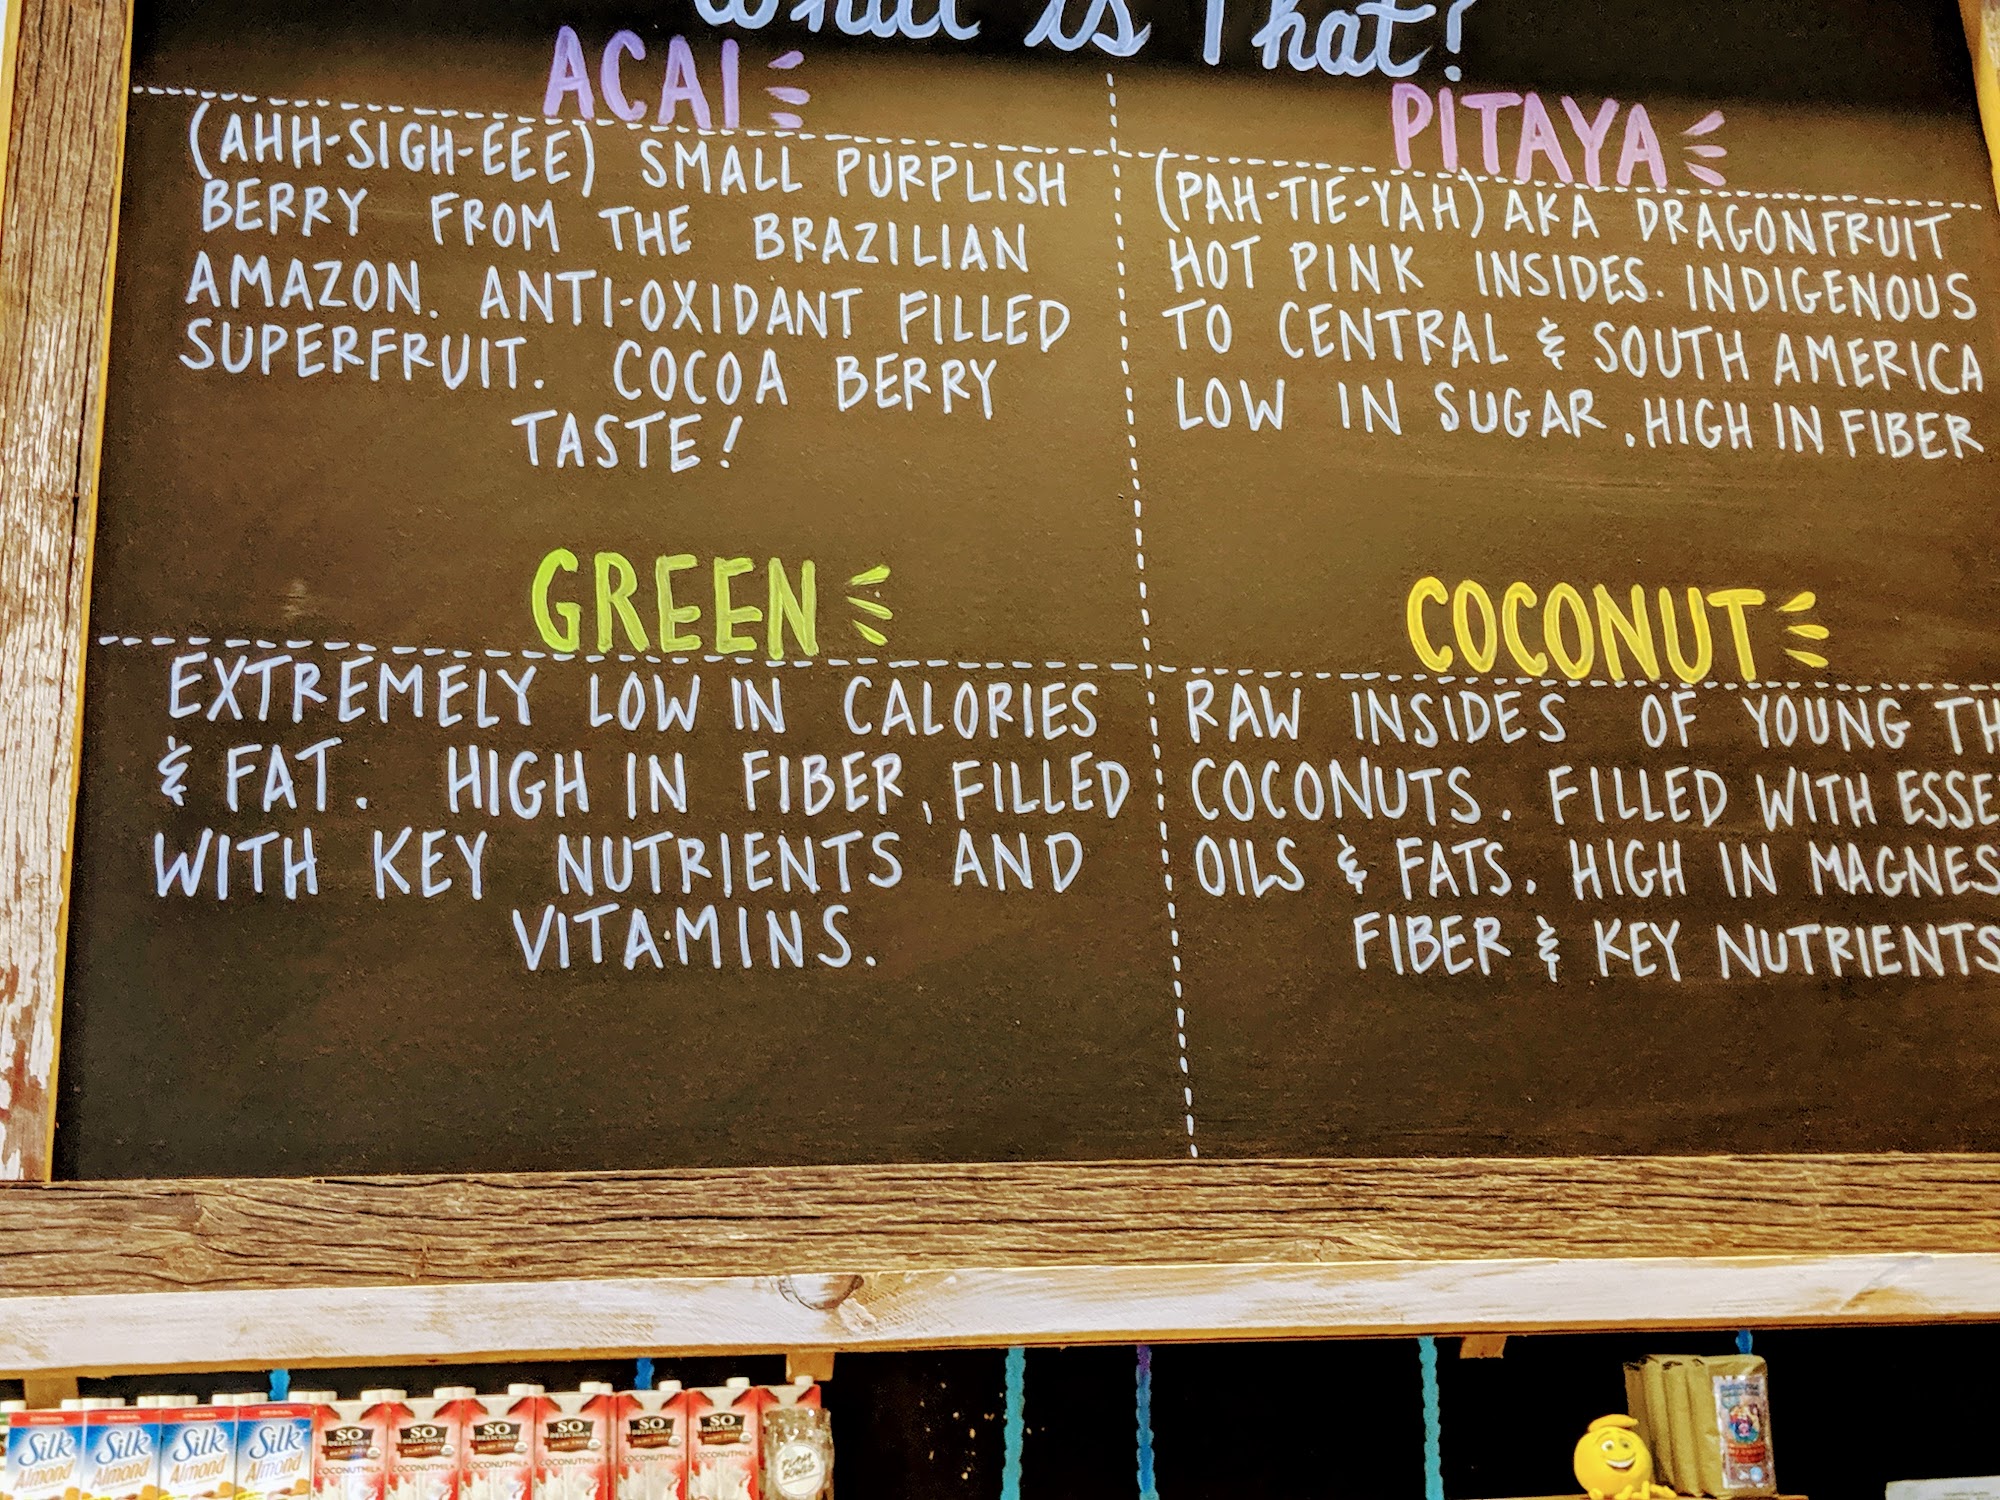 What is That?
ACAI
(AHH-SIGH-EEE) SMALL PURPLISH
BERRY FROM THE BRAZILIAN
AMAZON. ANTI-OXIDANT FILLED
SUPERFRUIT. COCOA BERRY
TASTE!
PITAYA
(PAH-TIE-YAH) AKA DRAGONFRUIT
HOT PINK INSIDES. INDIGENOUS
TO CENTRAL & SOUTH AMERICA
LOW IN SUGAR, HIGH IN FIBER
GREEN
EXTREMELY LOW IN CALORIES
& FAT. HIGH IN FIBER, FILLED
WITH KEY NUTRIENTS AND
VITAMINS.
COCONUT
RAW INSIDES OF YOUNG TH
COCONUTS. FILLED WITH ESSE
OILS & FATS. HIGH IN MAGNES
FIBER & KEY NUTRIENTS
Silk Almond
Silk Almond
Silk Almond
Silk Almond
SO DELICIOUS COCONUTMILK
SO DELICIOUS COCONUTMILK
SO DELICIOUS COCONUTMILK
SO DELICIOUS COCONUTMILK
SO DELICIOUS COCONUTMILK
SO DELICIOUS COCONUTMILK